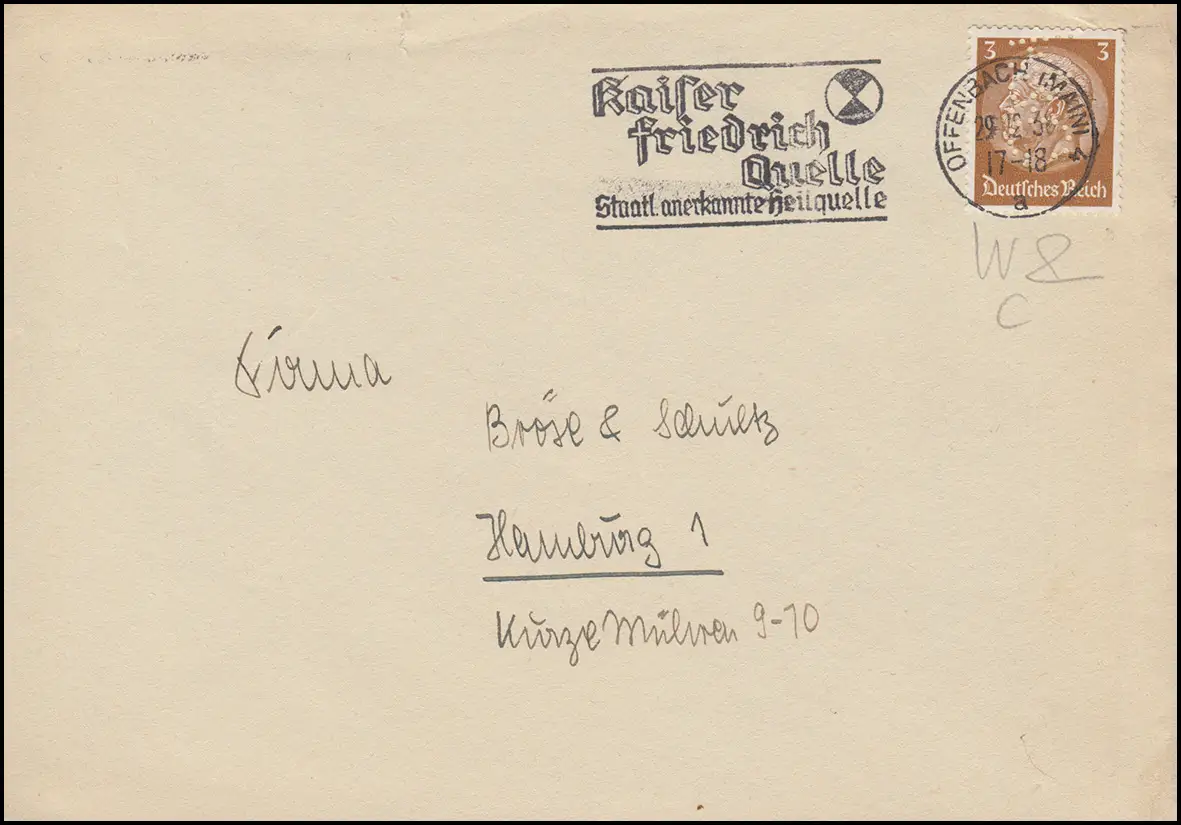 Kaiser
Friedrich
Quelle
Staatl. anerkannte Heilquelle
3 3
Deutsches Reich
OFFENBACH (MAIN) 4
29.12.36
17-18
a
W &
C
Firma
Bröse & Schultz
Hamburg 1
Kurze Mühren 9-10